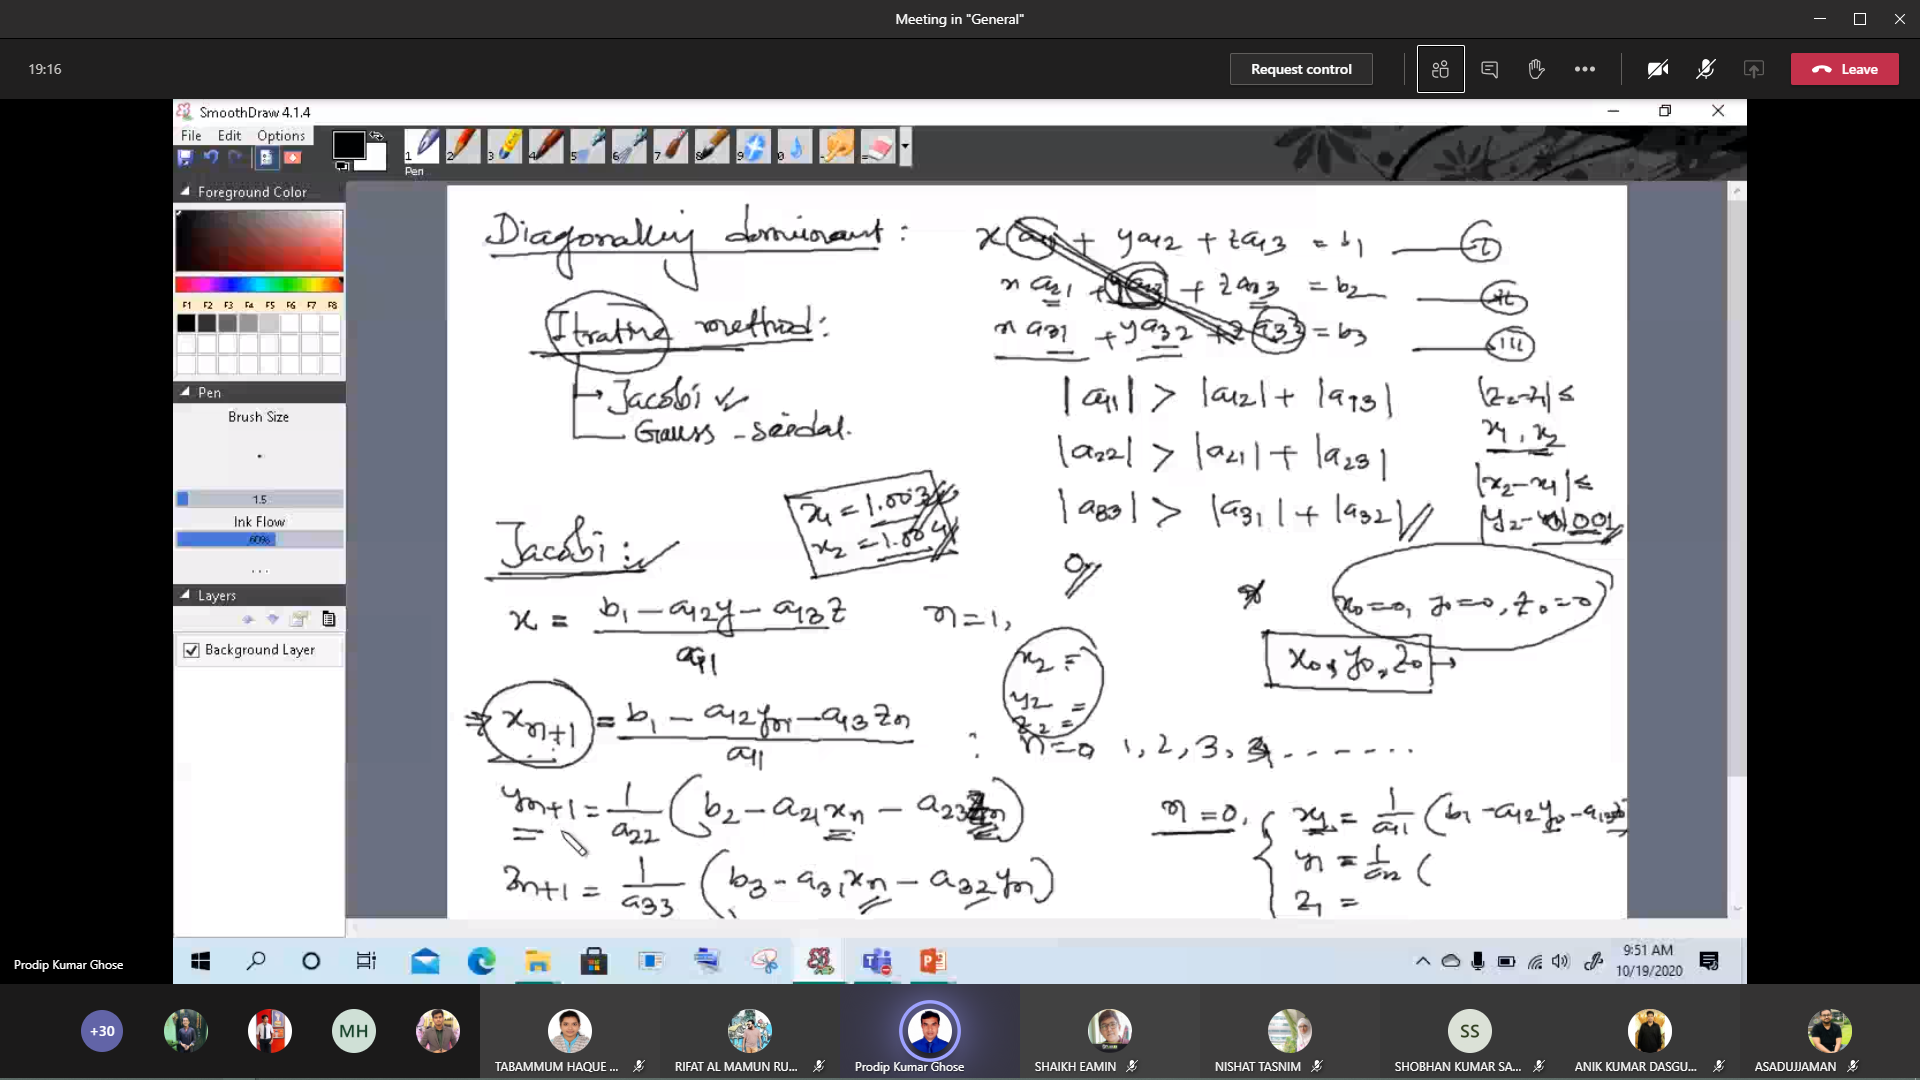 Meeting in "General"
19:16
Request control
Leave
SmoothDraw 4.1.4
File Edit Options
1 2 3 4 5 6 7 8 9 0 - =
Pen
Foreground Color
F1 F2 F3 F4 F5 F6 F7 F8
Pen
Brush Size
1.5
Ink Flow
60%
...
Layers
Background Layer
Diagonally dominant :
Itrative method :
Jacobi
Gauss - seidal.
x a11 + y a12 + z a13 = b1 I
x a21 + y a22 + z a23 = b2 II
x a31 + y a32 + z a33 = b3 III
|a11| > |a12| + |a13|
|a22| > |a21| + |a23|
|a33| > |a31| + |a32|
|z2-z1| ≤
x1, x2
|x2-x1| ≤
x1 = 1.003
x2 = 1.004
Jacobi :
x = b1 - a12y - a13z / a11
n=1,
x2 =
y2 =
z2 =
x0=0, y0=0, z0=0
x0, y0, z0 →
⇒ xn+1 = b1 - a12yn - a13zn / a11 : n=0, 1, 2, 3, .......
yn+1 = 1/a22 (b2 - a21xn - a23zn)
zn+1 = 1/a33 (b3 - a31xn - a32yn)
n=0, { x1 = 1/a11 (b1 - a12y0 - a13z0
y1 = 1/a22 (
z1 =
9:51 AM
10/19/2020
Prodip Kumar Ghose
+30
MH
TABAMMUM HAQUE ...
RIFAT AL MAMUN RU...
Prodip Kumar Ghose
SHAIKH EAMIN
NISHAT TASNIM
SS
SHOBHAN KUMAR SA...
ANIK KUMAR DASGU...
ASADUJJAMAN